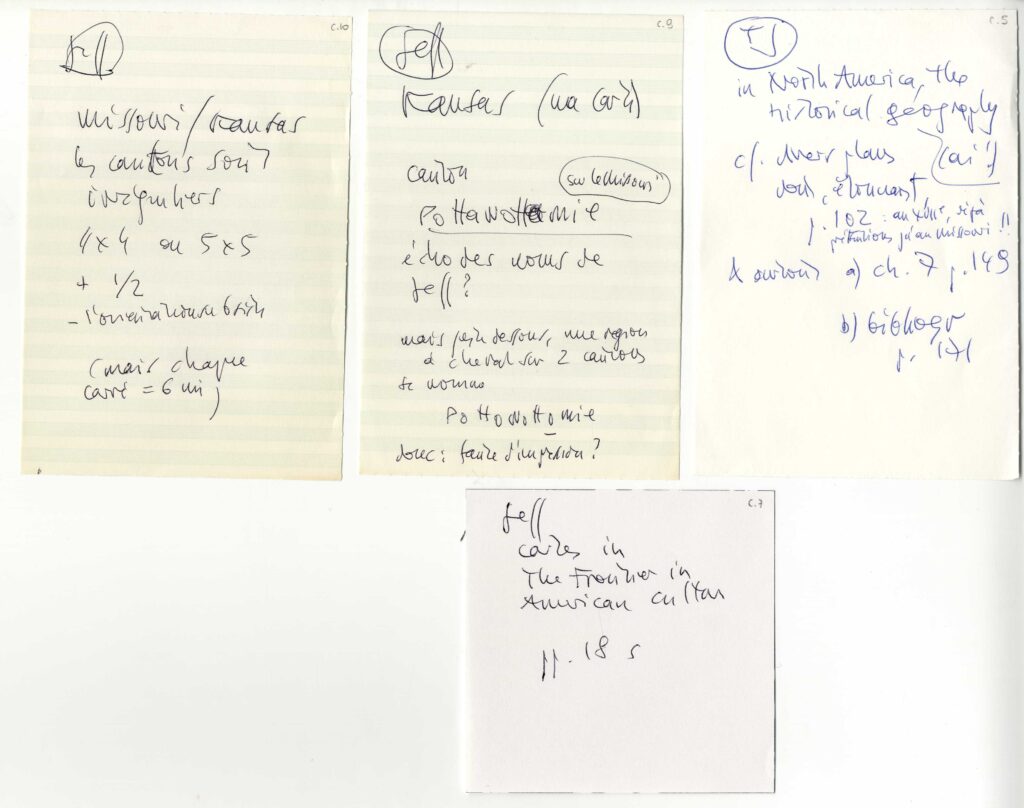 c.10
Jeff
Missouri/Kansas
les cantons sont
irréguliers
4x4 ou 5x5
+ 1/2
(mais chaque
carré = 6 mi)
c.9
Jeff
Kansas (ma carte)
canton
sur le Missouri
Pottawottomie
écho des noms de
Jeff?
mais juste dessous, une région
à cheval sur 2 cantons
se nomme
Pottowottomie
donc: faute d'impression?
c.5
TJ
in North America, the
historical geography
cf. divers plans
(ai!)
dont, étonnant
p. 102 : au XVIIe, déjà
prétentions jq'au Missouri!!
& surtout a) ch. 7 p. 149
b) bibliogr
p. 171
c.7
Jeff
cartes in
The Frontier in
American Culture
pp. 18 s